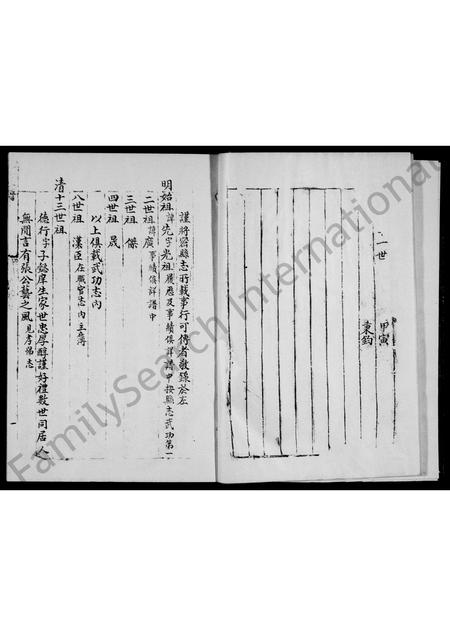 二世
甲寅
秉鈞
謹將密縣志所載事行可傳者敬錄於左
明始祖諱先字光祖履歷及事績俱詳譜中按縣志武功第一
二世祖諱廣事績俱詳譜中
三世祖 傑
四世祖 晟
以上俱載武功志內
八世祖 漢臣在職官志內主簿
清十三世祖
德行字子懿庠生家世忠厚醇謹好禮數世同居人
無閒言有張公藝之風見孝弟志
FamilySearch International